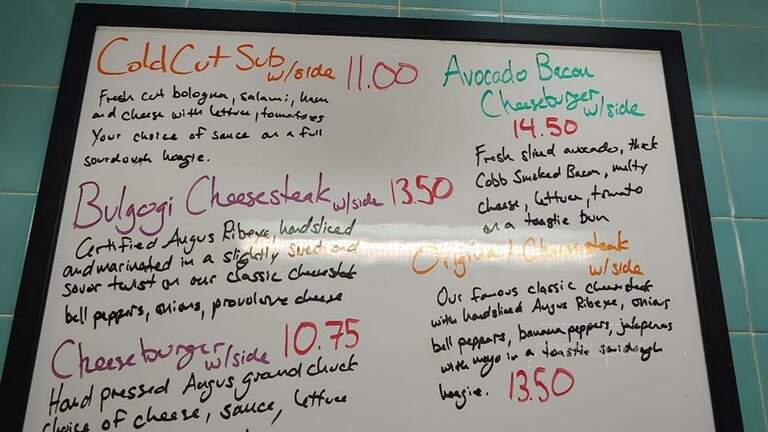 Cold Cut Sub w/side 11.00
Fresh cut bologna, salami, ham
and cheese with lettuce, tomatoes
Your choice of sauce on a full
sourdough hoagie.
Bulgogi Cheesesteak w/side 13.50
Certified Angus Ribeye, handsliced
and marinated in a slightly sweet and
sour twist on our classic cheesesteak
bell peppers, onions, provolone cheese
Cheeseburger w/side 10.75
Hand pressed Angus ground chuck
choice of cheese, sauce, lettuce
Avocado Bacon
Cheeseburger w/side
14.50
Fresh sliced avocados, thick
Cobb Smoked Bacon, melty
cheese, lettuce, tomato
on a toastie bun
Original Cheesesteak
w/side
Our famous classic cheesesteak
with handsliced Angus Ribeye, onions
bell peppers, banana peppers, jalapenos
with mayo in a toastie sourdough
hoagie. 13.50